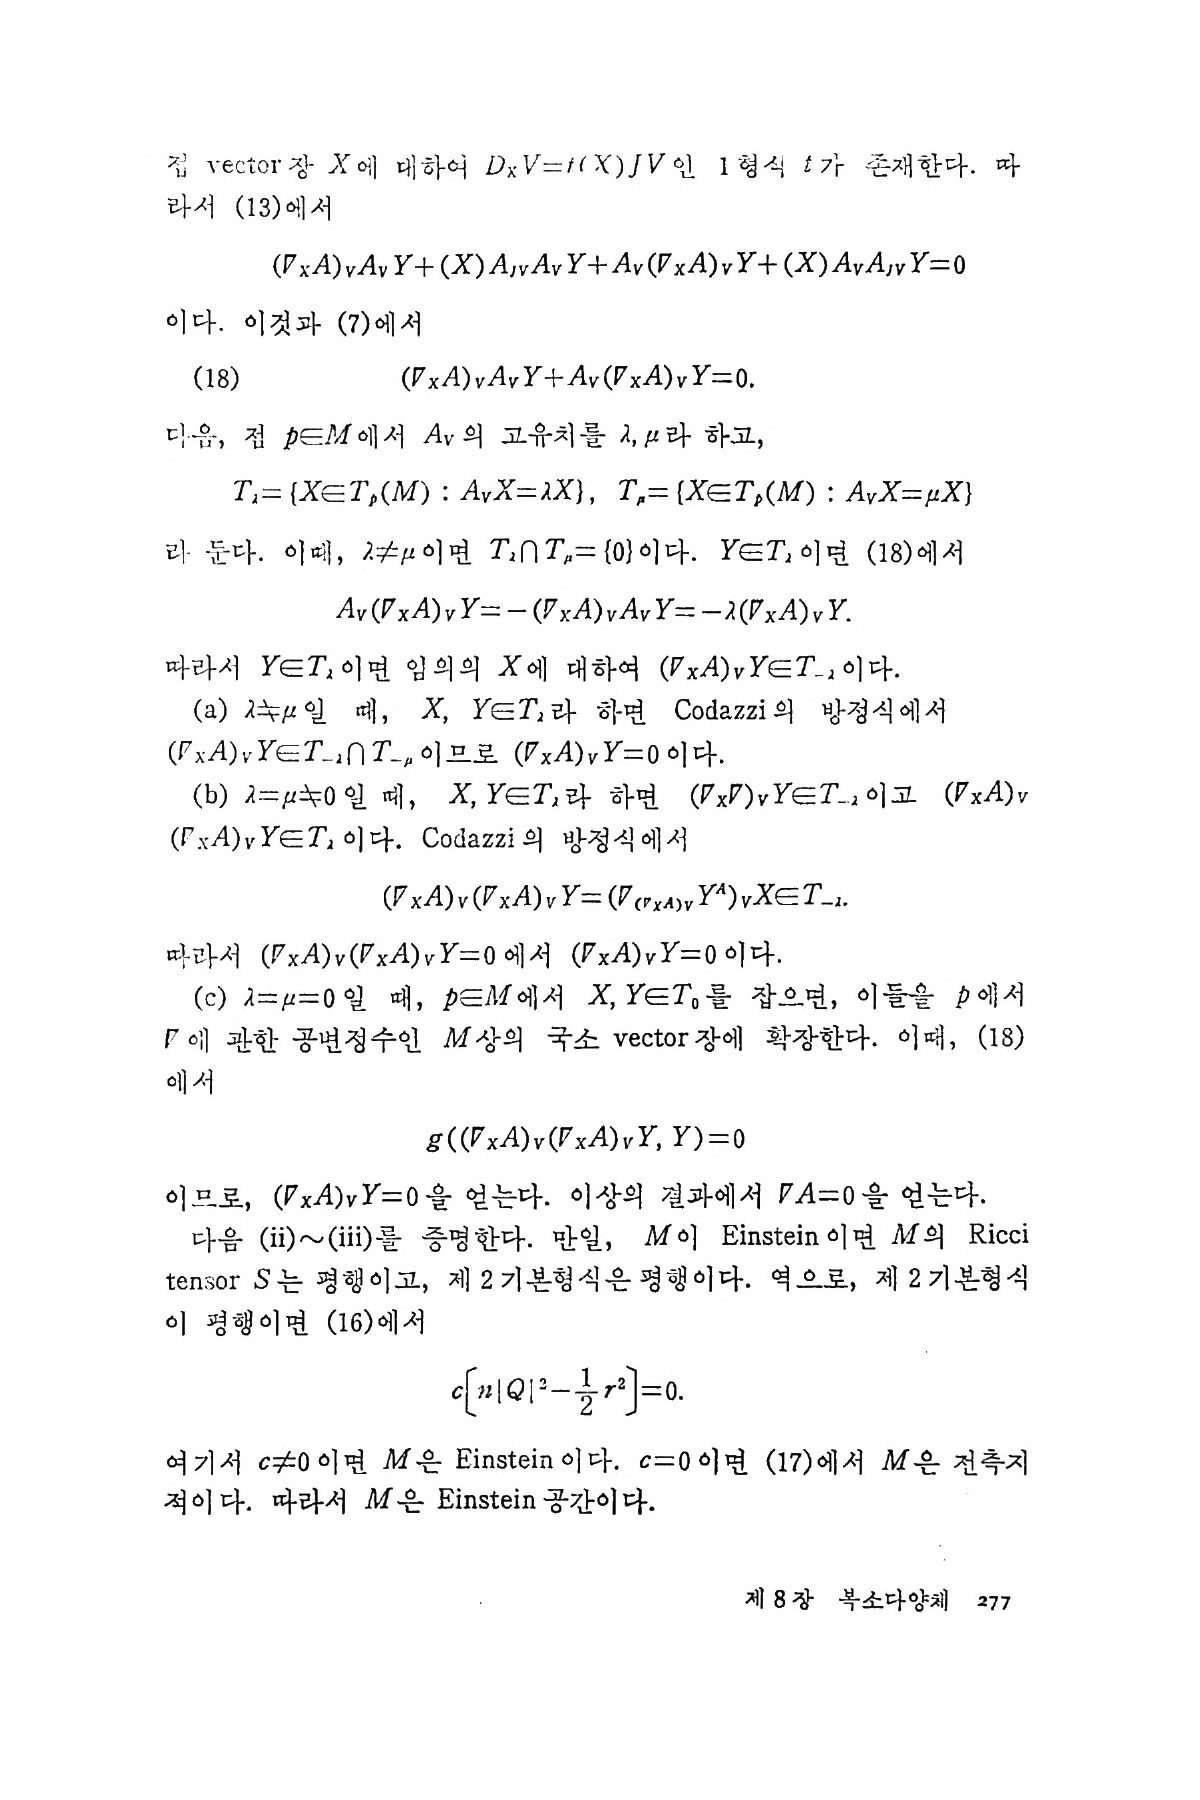 접 vector장 X에 대하여 D_XV=t(X)JV인 1형식 t가 존재한다. 따
라서 (13)에서
(∇_XA)_VA_VY+(X)A_{JV}A_VY+A_V(∇_XA)_VY+(X)A_VA_{JV}Y=0
이다. 이것과 (7)에서
(18) (∇_XA)_VA_VY+A_V(∇_XA)_VY=0.
다음, 점 p∈M에서 A_V의 고유치를 λ, μ라 하고,
T_λ={X∈T_p(M) : A_VX=λX}, T_μ={X∈T_p(M) : A_VX=μX}
라 둔다. 이때, λ≠μ이면 T_λ∩T_μ={0}이다. Y∈T_λ이면 (18)에서
A_V(∇_XA)_VY=−(∇_XA)_VA_VY=−λ(∇_XA)_VY.
따라서 Y∈T_λ이면 임의의 X에 대하여 (∇_XA)_VY∈T_{-λ}이다.
(a) λ≠μ일 때, X, Y∈T_λ라 하면 Codazzi의 방정식에서
(∇_XA)_VY∈T_{-λ}∩T_{-μ}이므로 (∇_XA)_VY=0이다.
(b) λ=μ≠0일 때, X, Y∈T_λ라 하면 (∇_X∇)_VY∈T_{-λ}이고 (∇_XA)_V
(∇_XA)_VY∈T_λ이다. Codazzi의 방정식에서
(∇_XA)_V(∇_XA)_VY=(∇_{(∇_XA)_V}Y^A)_VX∈T_{-λ}.
따라서 (∇_XA)_V(∇_XA)_VY=0에서 (∇_XA)_VY=0이다.
(c) λ=μ=0일 때, p∈M에서 X, Y∈T_0를 잡으면, 이들을 p에서
∇에 관한 공변정수인 M상의 국소 vector장에 확장한다. 이때, (18)
에서
g((∇_XA)_V(∇_XA)_VY, Y)=0
이므로, (∇_XA)_VY=0을 얻는다. 이상의 결과에서 ∇A=0을 얻는다.
다음 (ii)~(iii)를 증명한다. 만일, M이 Einstein이면 M의 Ricci
tensor S는 평행이고, 제 2 기본형식은 평행이다. 역으로, 제 2 기본형식
이 평행이면 (16)에서
c[n|Q|²−\frac{1}{2}r²]=0.
여기서 c≠0이면 M은 Einstein이다. c=0이면 (17)에서 M은 전측지
적이다. 따라서 M은 Einstein공간이다.
제 8 장 복소다양체 277